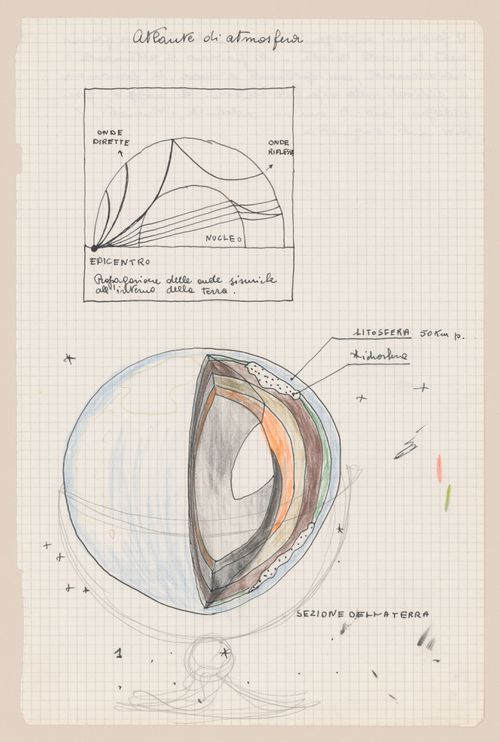 Atlante di atmosfera
ONDE
DIRETTE
ONDE
RIFLESSE
NUCLEO
EPICENTRO
Propagazione delle onde sismiche
all'interno della terra.
LITOSFERA 50 Km p.
Idrosfera
SEZIONE DELLA TERRA
1